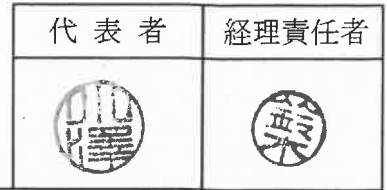 代表者 経理責任者
小澤
鈴木